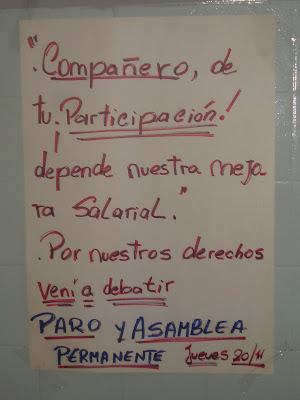 ". Compañero, de
tu. Participación!
depende nuestra mejo
ra Salarial."
. Por nuestros derechos
vení a debatir
PARO y ASAMBLEA
PERMANENTE Jueves 20/11